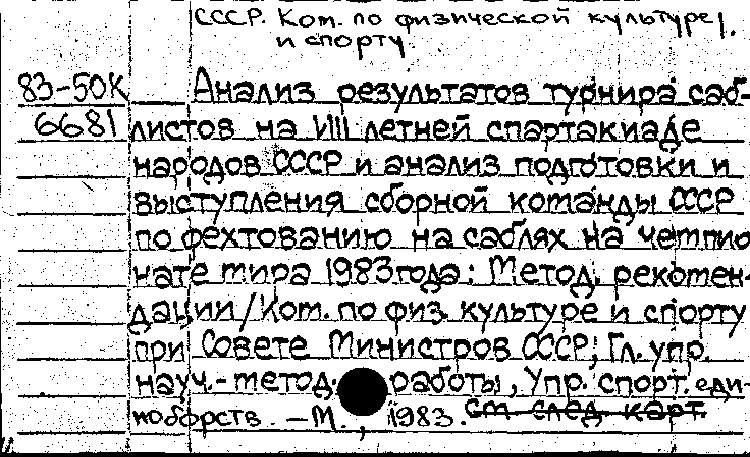 СССР. Ком. по физической культуре
и спорту.
83-50К Анализ результатов турнира саб-
6681 листов на VIII летней спартакиаде
народов СССР и анализ подготовки и
выступления сборной команды СССР
по фехтованию на саблях на чемпио
нате мира 1983 года: Метод. рекомен-
дации/Ком. по физ. культуре и спорту
при Совете Министров СССР; Гл. упр.
науч.-метод. работы, Упр. спорт. еди-
ноборств. – М., 1983. см след карт.